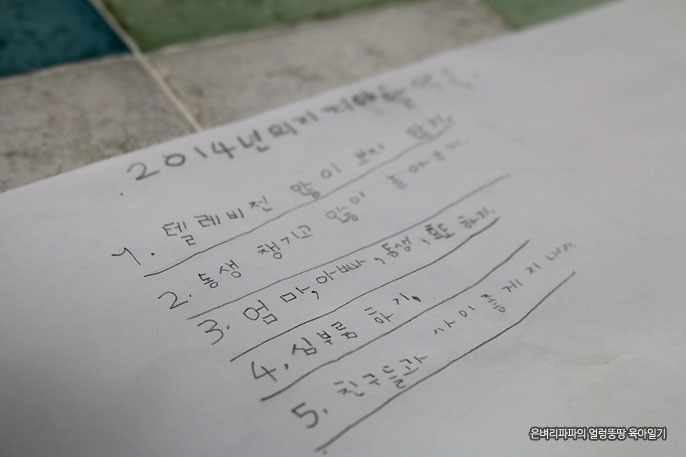 2014년의지 지야을
1. 텔레비전 많이 보지 않기.
2. 동생 챙기고 많이 놀아주기.
3. 엄마, 아빠, 동생, 효도 하기.
4. 심부름 하기.
5. 친구들과 사이좋게 지내기
은벼리파파의 얼렁뚱땅 육아일기